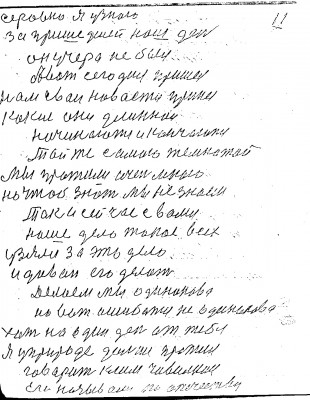 серовно я узнаю
11
за пришедшей наш ден
он учера не был
Авот сегодня пришеу
нам сваи новасти принеу
какие они длинныи
начинаютя и канчаютя
Той же самаю темнатай
мы прожили очен много
но чтоб знат мы не знаем
Так и сейчас свами
наше дело такое всех
узяли за это дело
и давай его делат
делаем мы одинакова
но вот ашибаемя не одинакова
хот на один ден от тебя
я природе дольше прожиу
говарит клим
его называли по отечеству